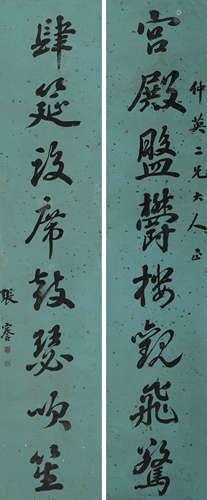 仲英二兄大人正
宫殿盤鬱樓觀飛驚
肆筵設席鼓瑟吹笙
張謇